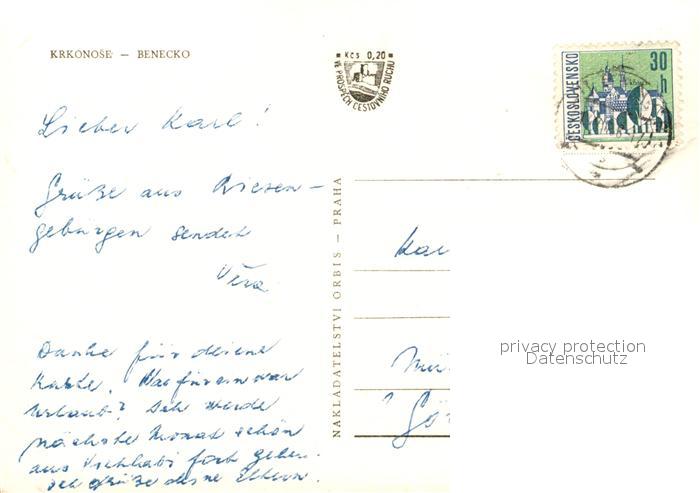 KRKONOŠE – BENECKO
Kčs 0,20
VE PROSPĚCH CESTOVNÍHO RUCHU
ČESKOSLOVENSKO
30
h
Lieber Karl!
Grüße aus Riesen-
gebürgen sendet
Věra
Danke für deiene
Karte. Was für ein war
Urlaub? Ich werde
nächste Monat schön
aus Vrchlabi fort gehen.
Ich grüße deine Eltern.
NAKLADATELSTVÍ ORBIS – PRAHA
Kar
privacy protection
Datenschutz